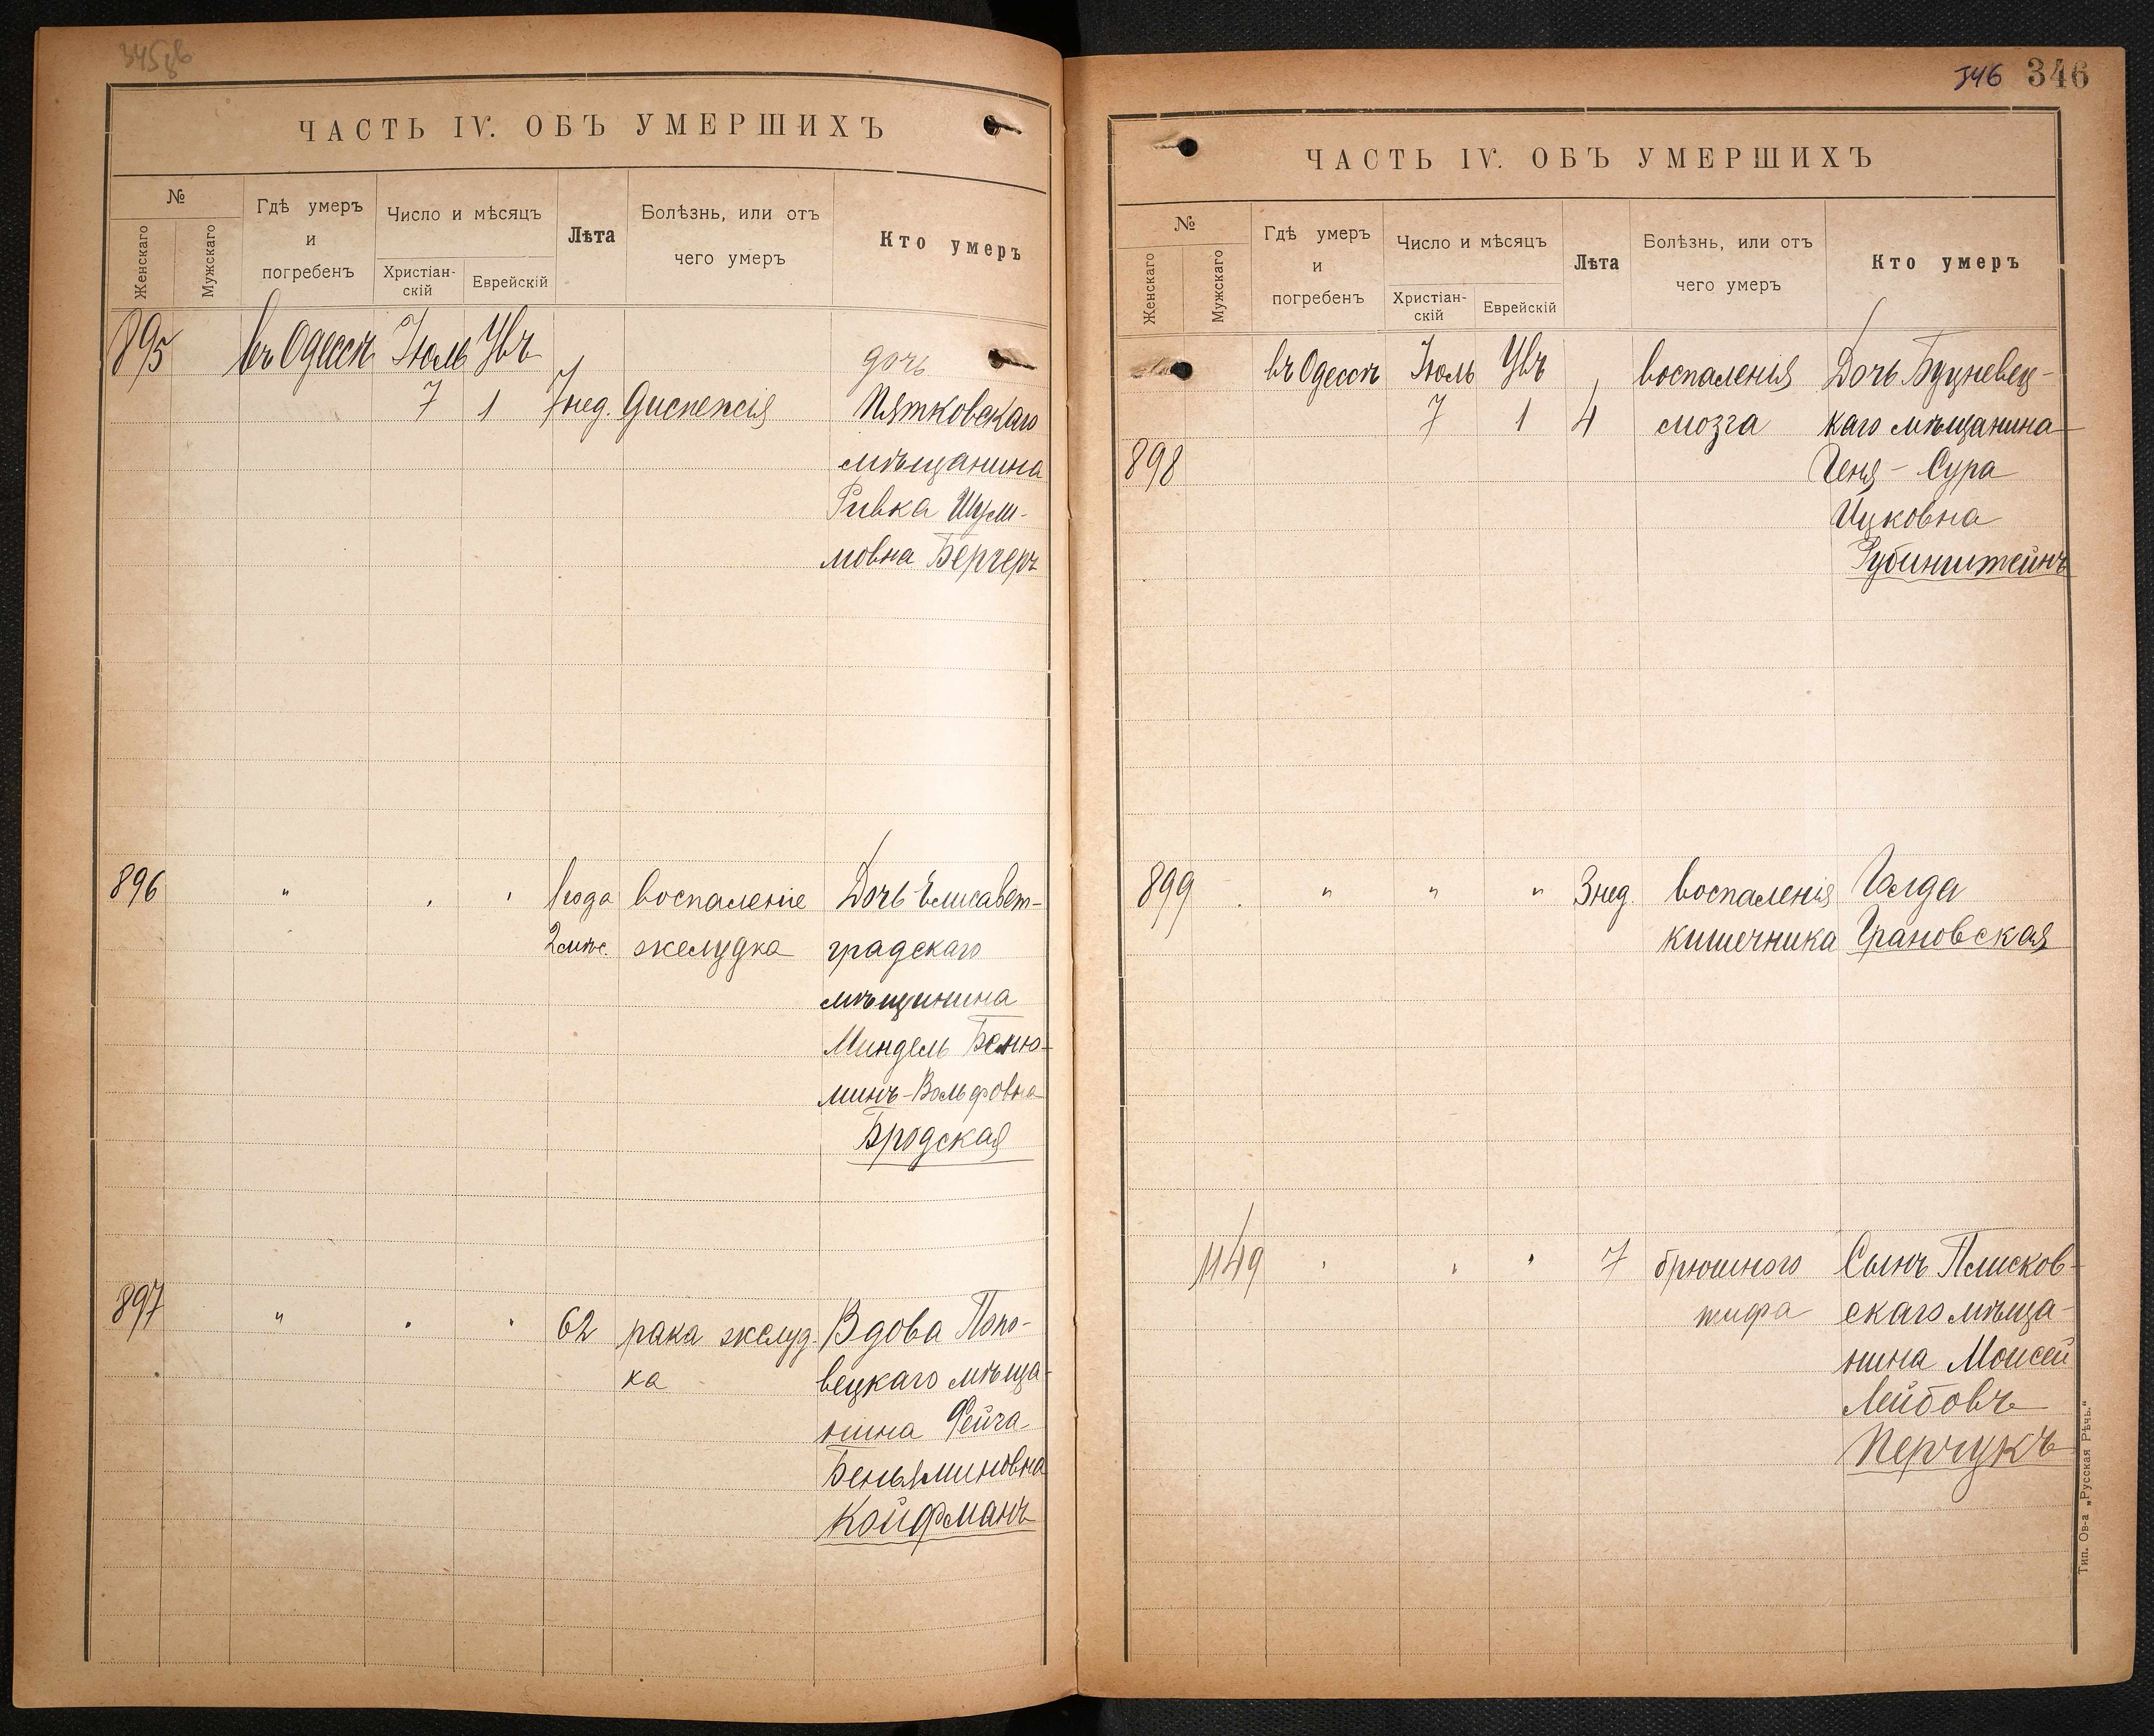 346 346
ЧАСТЬ IV. ОБЪ УМЕРШИХЪ
№
Женскаго
Мужскаго
Гдѣ умеръ
и
погребенъ
Число и мѣсяцъ
Христіан-
скій
Еврейскій
Лѣта
Болѣзнь, или отъ
чего умеръ
Кто умеръ
895 въ Одессѣ Іюль
7 1 7 нед. Диспепсія
дочь
Пятковскаго
мѣщанина
Ривка Шули-
мовна Бергеръ
896 " " " 1 года воспаленіе Дочь Елисавет-
2 мѣс. желудка градскаго
мѣщанина
Миндель Беню-
минъ-Вольфовна
Бродская
897 " " " 62 рака желуд- Вдова Попо-
ка вецкаго мѣща-
нина Фейга
Беньяминовна
Койфманъ
ЧАСТЬ IV. ОБЪ УМЕРШИХЪ
№
Женскаго
Мужскаго
Гдѣ умеръ
и
погребенъ
Число и мѣсяцъ
Христіан-
скій
Еврейскій
Лѣта
Болѣзнь, или отъ
чего умеръ
Кто умеръ
въ Одессѣ Іюль воспаленія Дочь Буцневец-
7 1 4 мозга каго мѣщанина
898 Геня-Сура
Ицковна
Рубинштейнъ
899 " " " 3 нед. воспаленія Голда
кишечника Грановская
1149 " " " 7 брюшного Сынъ Плисков-
тифа скаго мѣща-
нина Моисей
Лейбовъ
Перчукъ
Тип. Ов-а „Русская Рѣчь.“